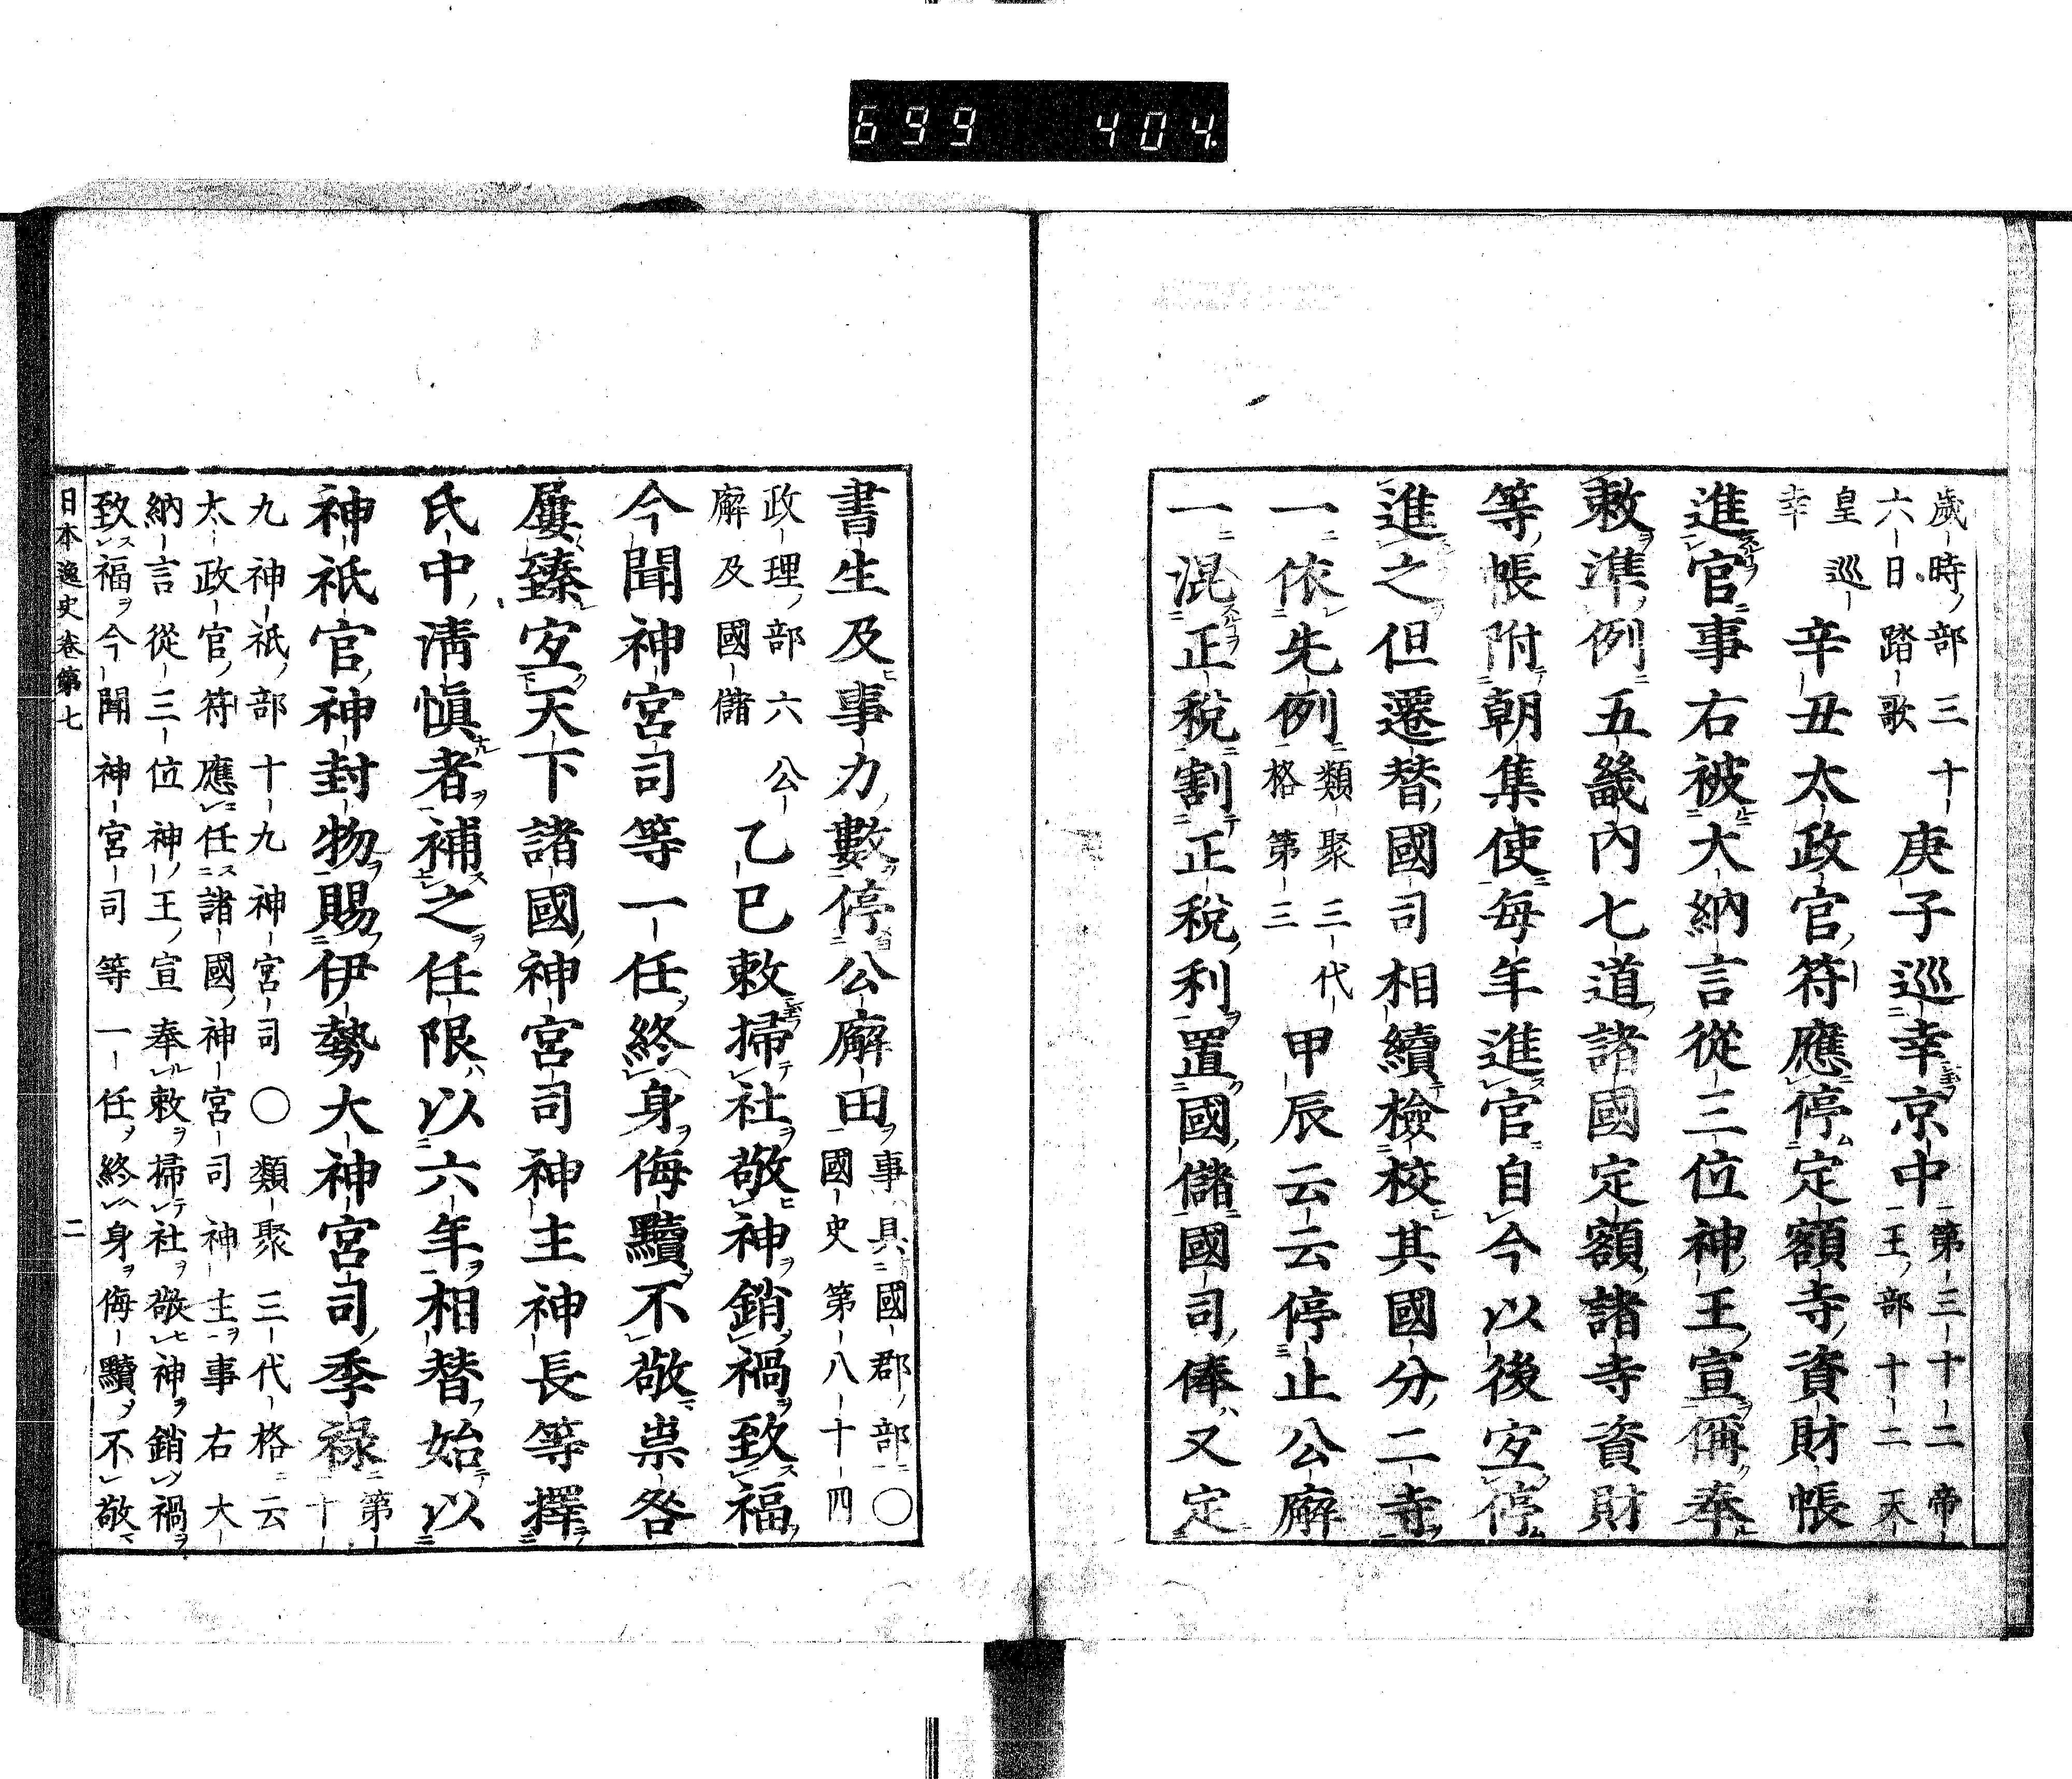 699 404
歲時部三十
六日踏歌
庚子巡幸京中
第三十二帝
王部十二天
皇巡
幸
辛丑太政官符應停定額寺資財帳
進官事右被大納言從三位神王宣偁奉
敕準例五畿內七道諸國定額諸寺資財
等帳附朝集使每年進官自今以後宜停
進之但遷替國司相續檢校其國分二寺
一依先例
類聚三代
格第三
甲辰云云停止公廨
一混正稅割正稅利置國儲國司俸又定
書生及事力數停公廨田
事具國郡部○
國史第八十四
政理部六公
廨及國儲
乙巳敕掃社敬神銷禍致福
今聞神宮司等一任終身侮黷不敬祟咎
屢臻宜天下諸國神宮司神主神長等擇
氏中清愼者補之任限以六年相替始以
神祇官神封物賜伊勢大神宮司季祿
第
十
九神祇部十九神宮司○類聚三代格云
太政官符應任諸國神宮司神主事右大
納言從三位神王宣奉敕掃社敬神銷禍
致福今聞神宮司等一任終身侮黷不敬
日本逸史卷第七 二